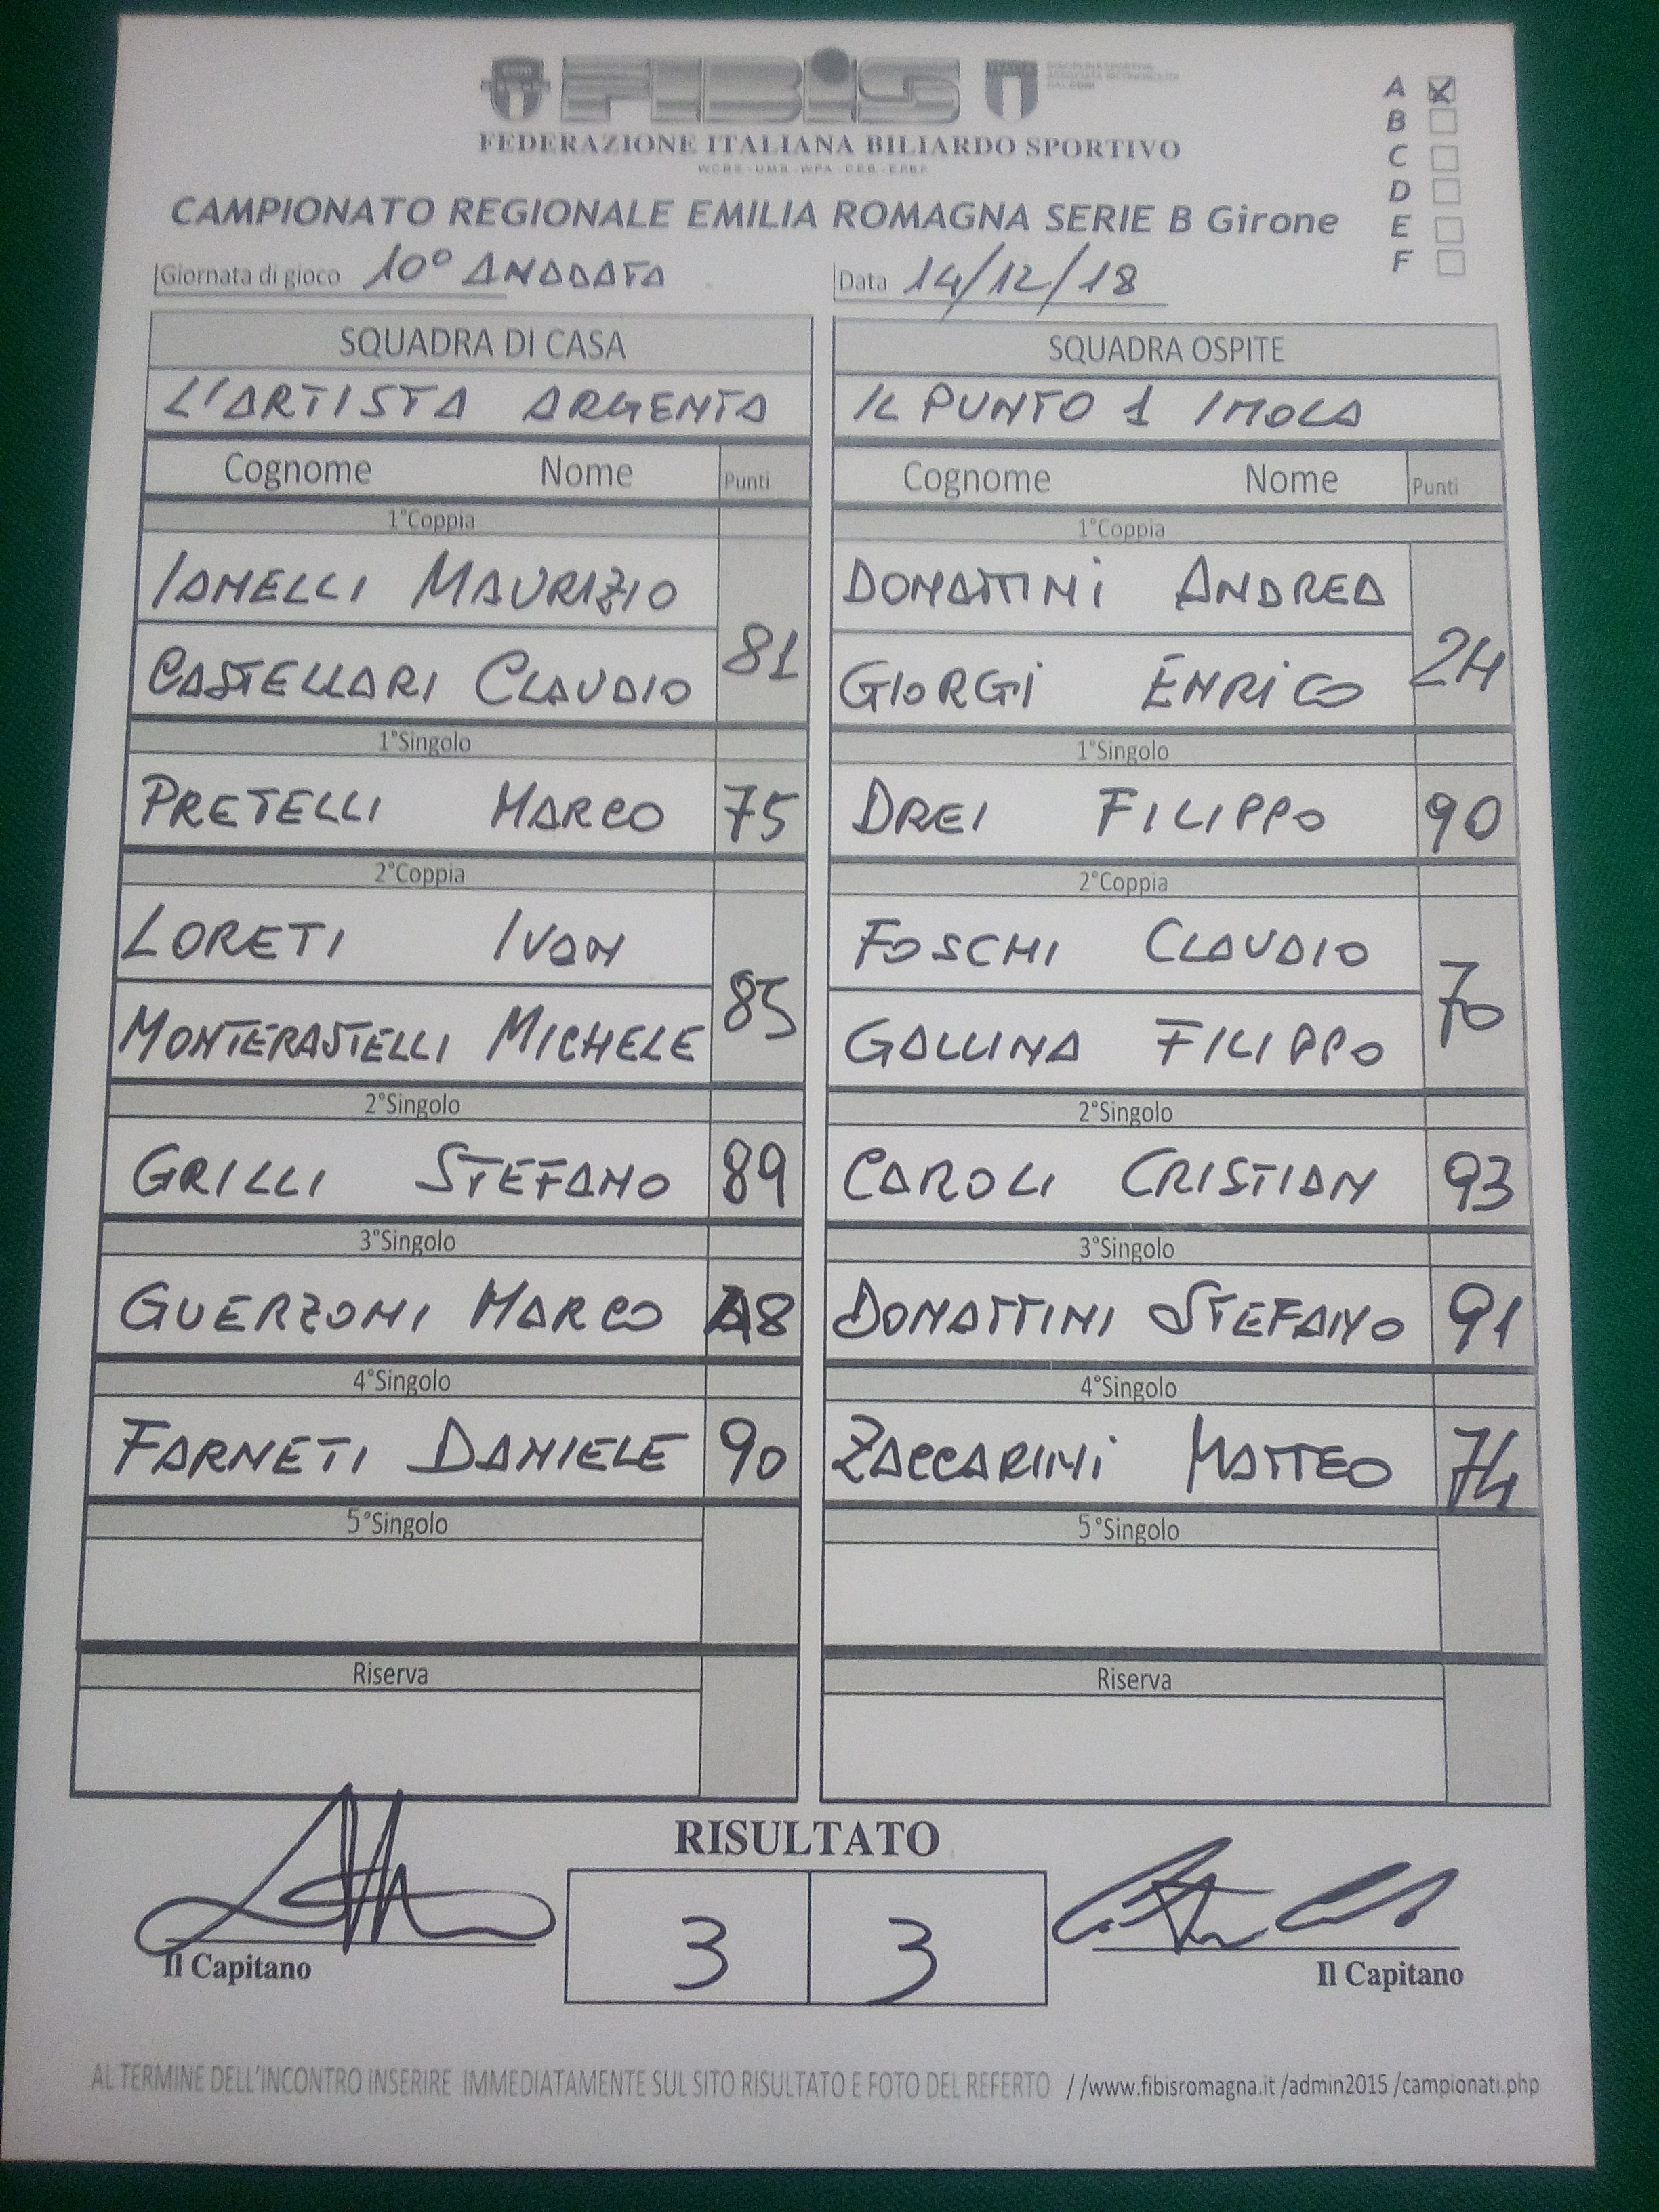 FIBiS
CONI
ITALIA
DISCIPLINA SPORTIVA
ASSOCIATA RICONOSCIUTA
DAL CONI
FEDERAZIONE ITALIANA BILIARDO SPORTIVO
WCBS - UMB - WPA - CEB - EPBF
A
B
C
D
E
F
CAMPIONATO REGIONALE EMILIA ROMAGNA SERIE B Girone
Giornata di gioco 10° ANADATA Data 14/12/18
SQUADRA DI CASA SQUADRA OSPITE
L'ARTISTA ARGENTA IL PUNTO 1 IMOLA
Cognome Nome Punti Cognome Nome Punti
1°Coppia 1°Coppia
IANELLI MAURIZIO DONATTINI ANDREA
81 24
CASTELLARI CLAUDIO GIORGI ENRICO
1°Singolo 1°Singolo
PRETELLI MARCO 75 DREI FILIPPO 90
2°Coppia 2°Coppia
LORETI IVAN FOSCHI CLAUDIO
85 70
MONTERASTELLI MICHELE GALLINA FILIPPO
2°Singolo 2°Singolo
GRILLI STEFANO 89 CAROLI CRISTIAN 93
3°Singolo 3°Singolo
GUERZONI MARCO DONATTINI STEFANO 91
4°Singolo 4°Singolo
FARNETI DANIELE 90 ZACCARINI MATTEO 74
5°Singolo 5°Singolo
Riserva Riserva
RISULTATO
3 3
Il Capitano Il Capitano
AL TERMINE DELL'INCONTRO INSERIRE IMMEDIATAMENTE SUL SITO RISULTATO E FOTO DEL REFERTO //www.fibisromagna.it /admin2015 /campionati.php